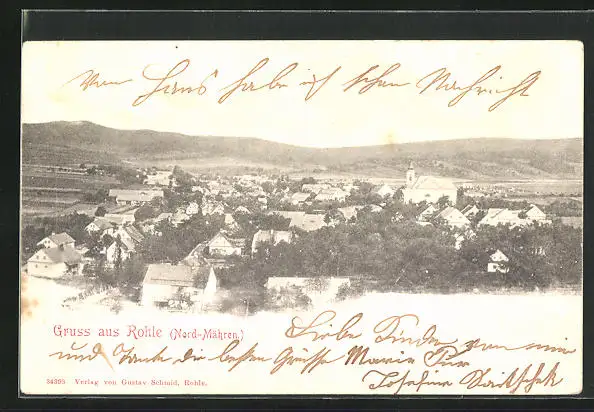 Von Hans habe ich schon Nachricht
Gruss aus Rohle (Nord-Mähren.)
Liebe Kinder von mir
und Tante die besten Grüsse Marie
Josefine
34393 Verlag von Gustav Schmid, Rohle.